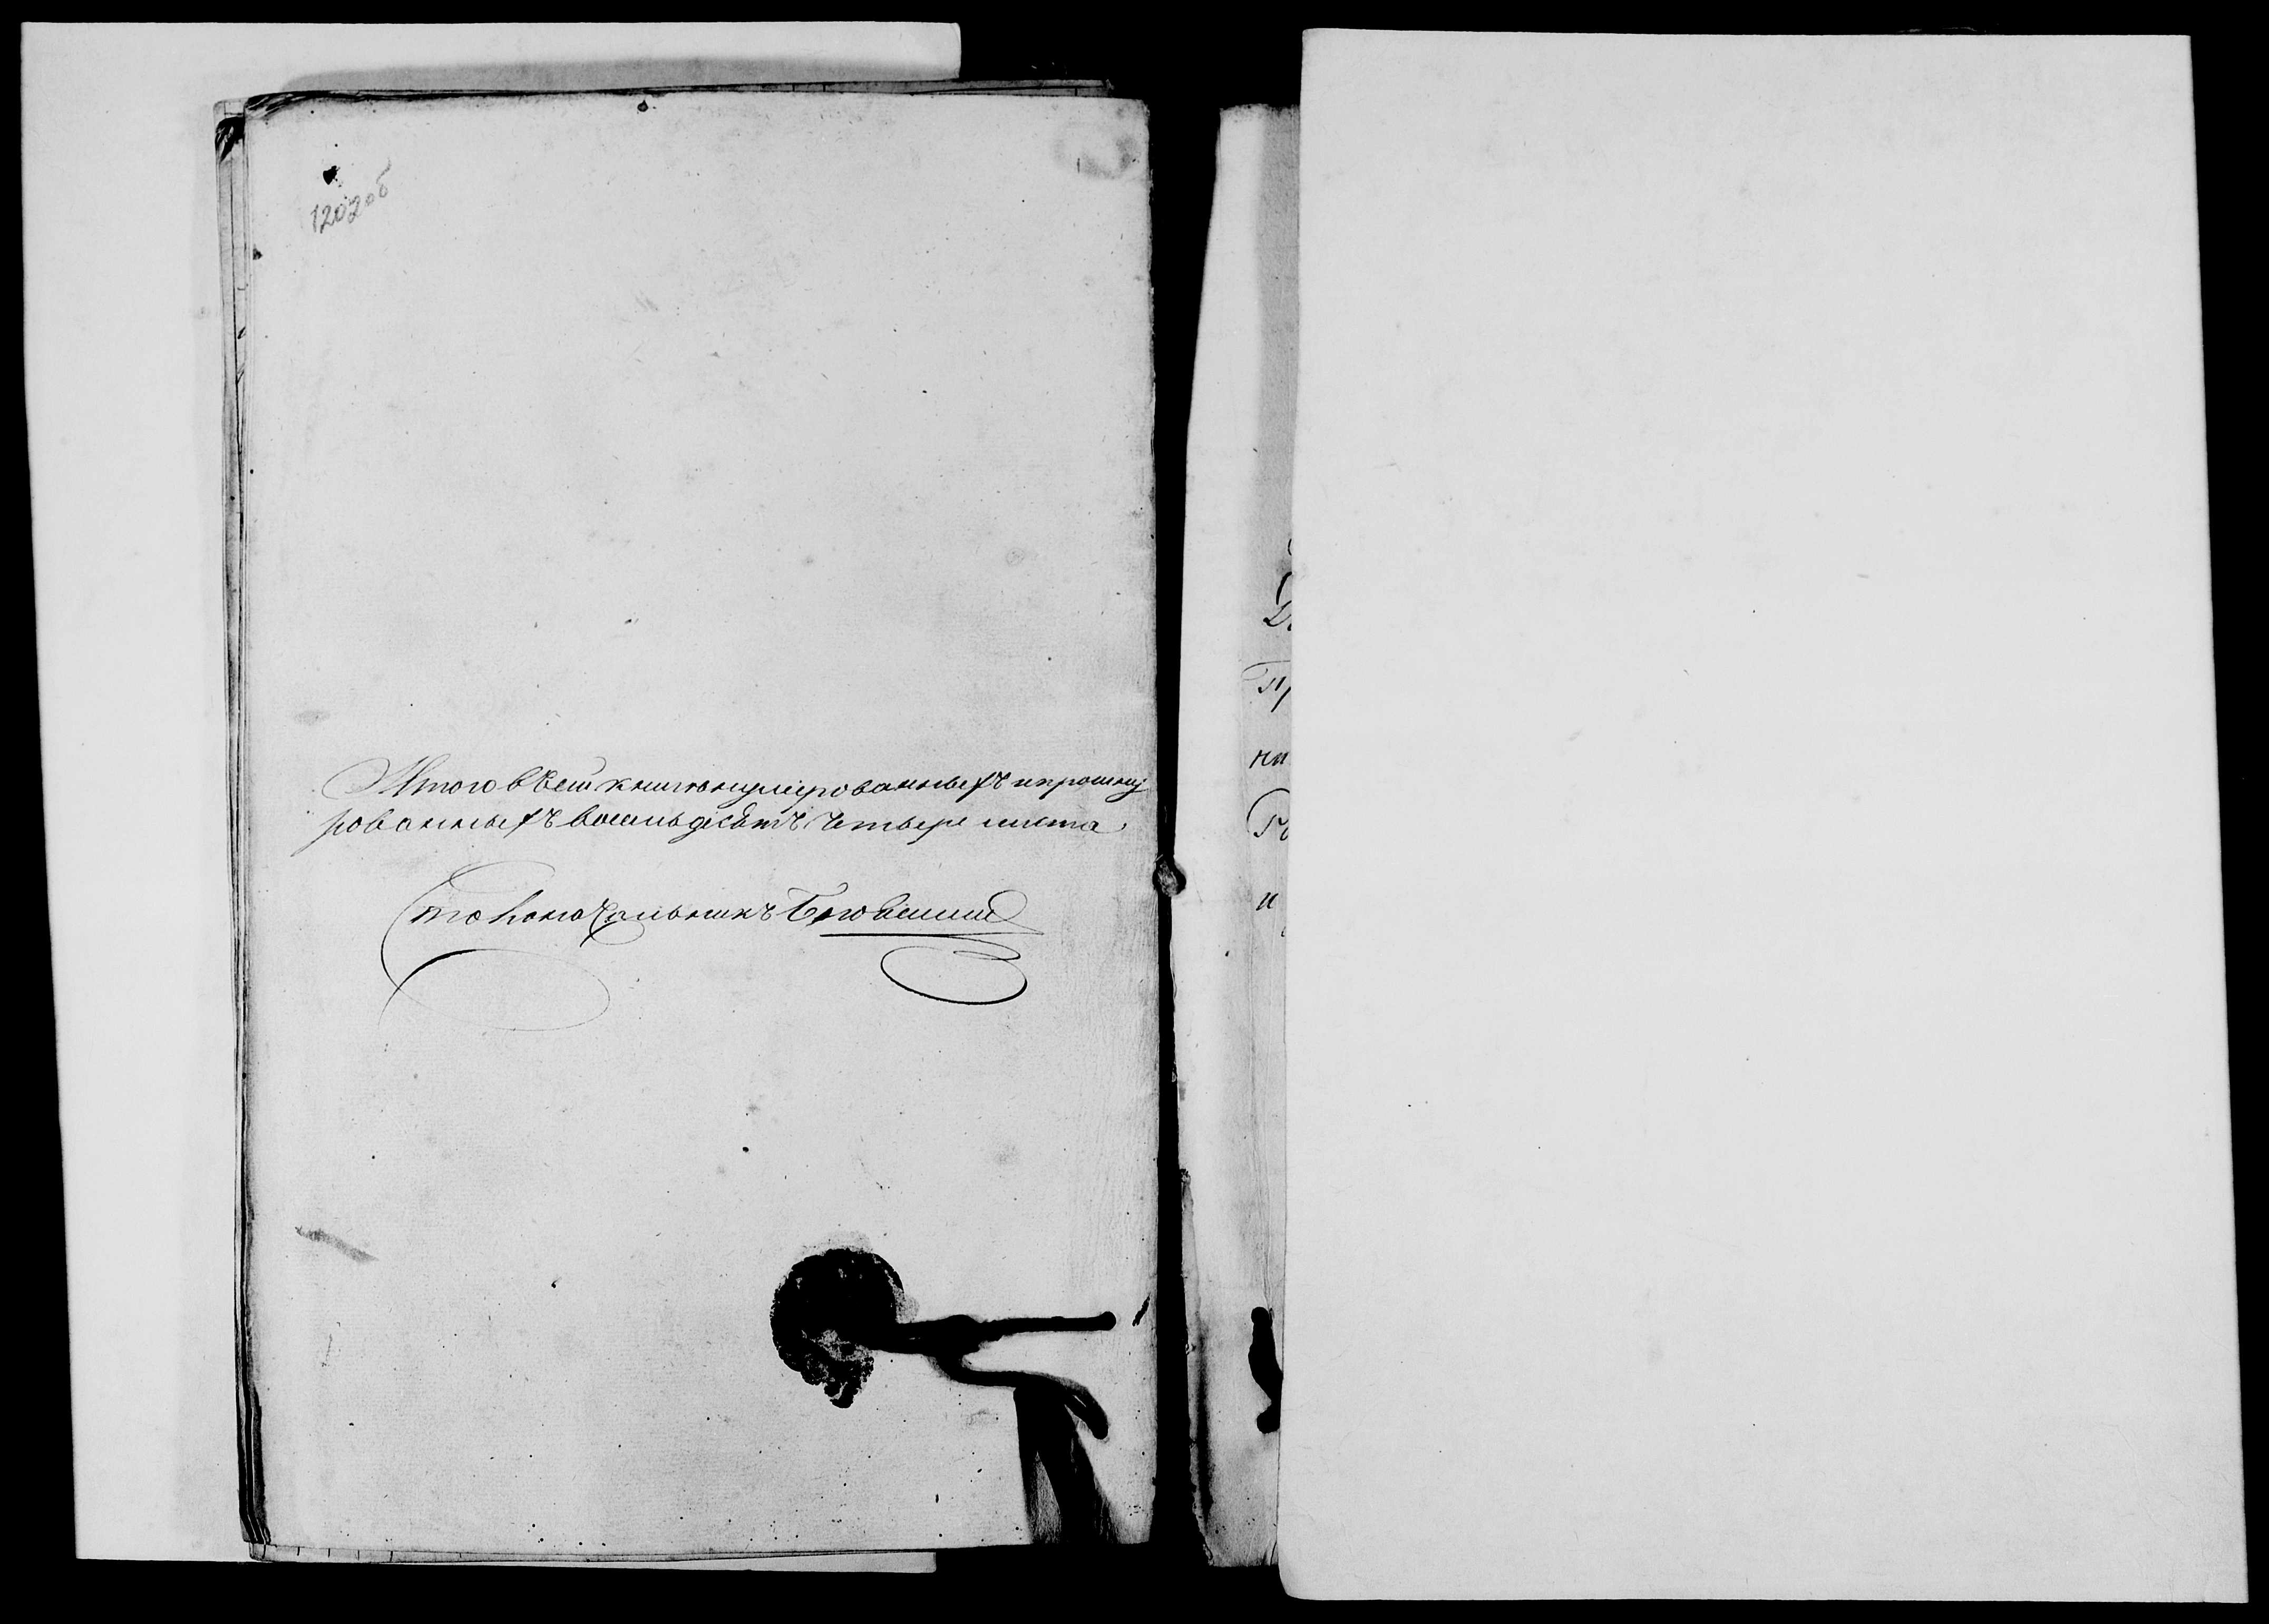 1202об
Итого в сей книгѣ нумерованныхъ и прошну
рованныхъ восемьдесѣтъ четвере листа
Столоначальникъ